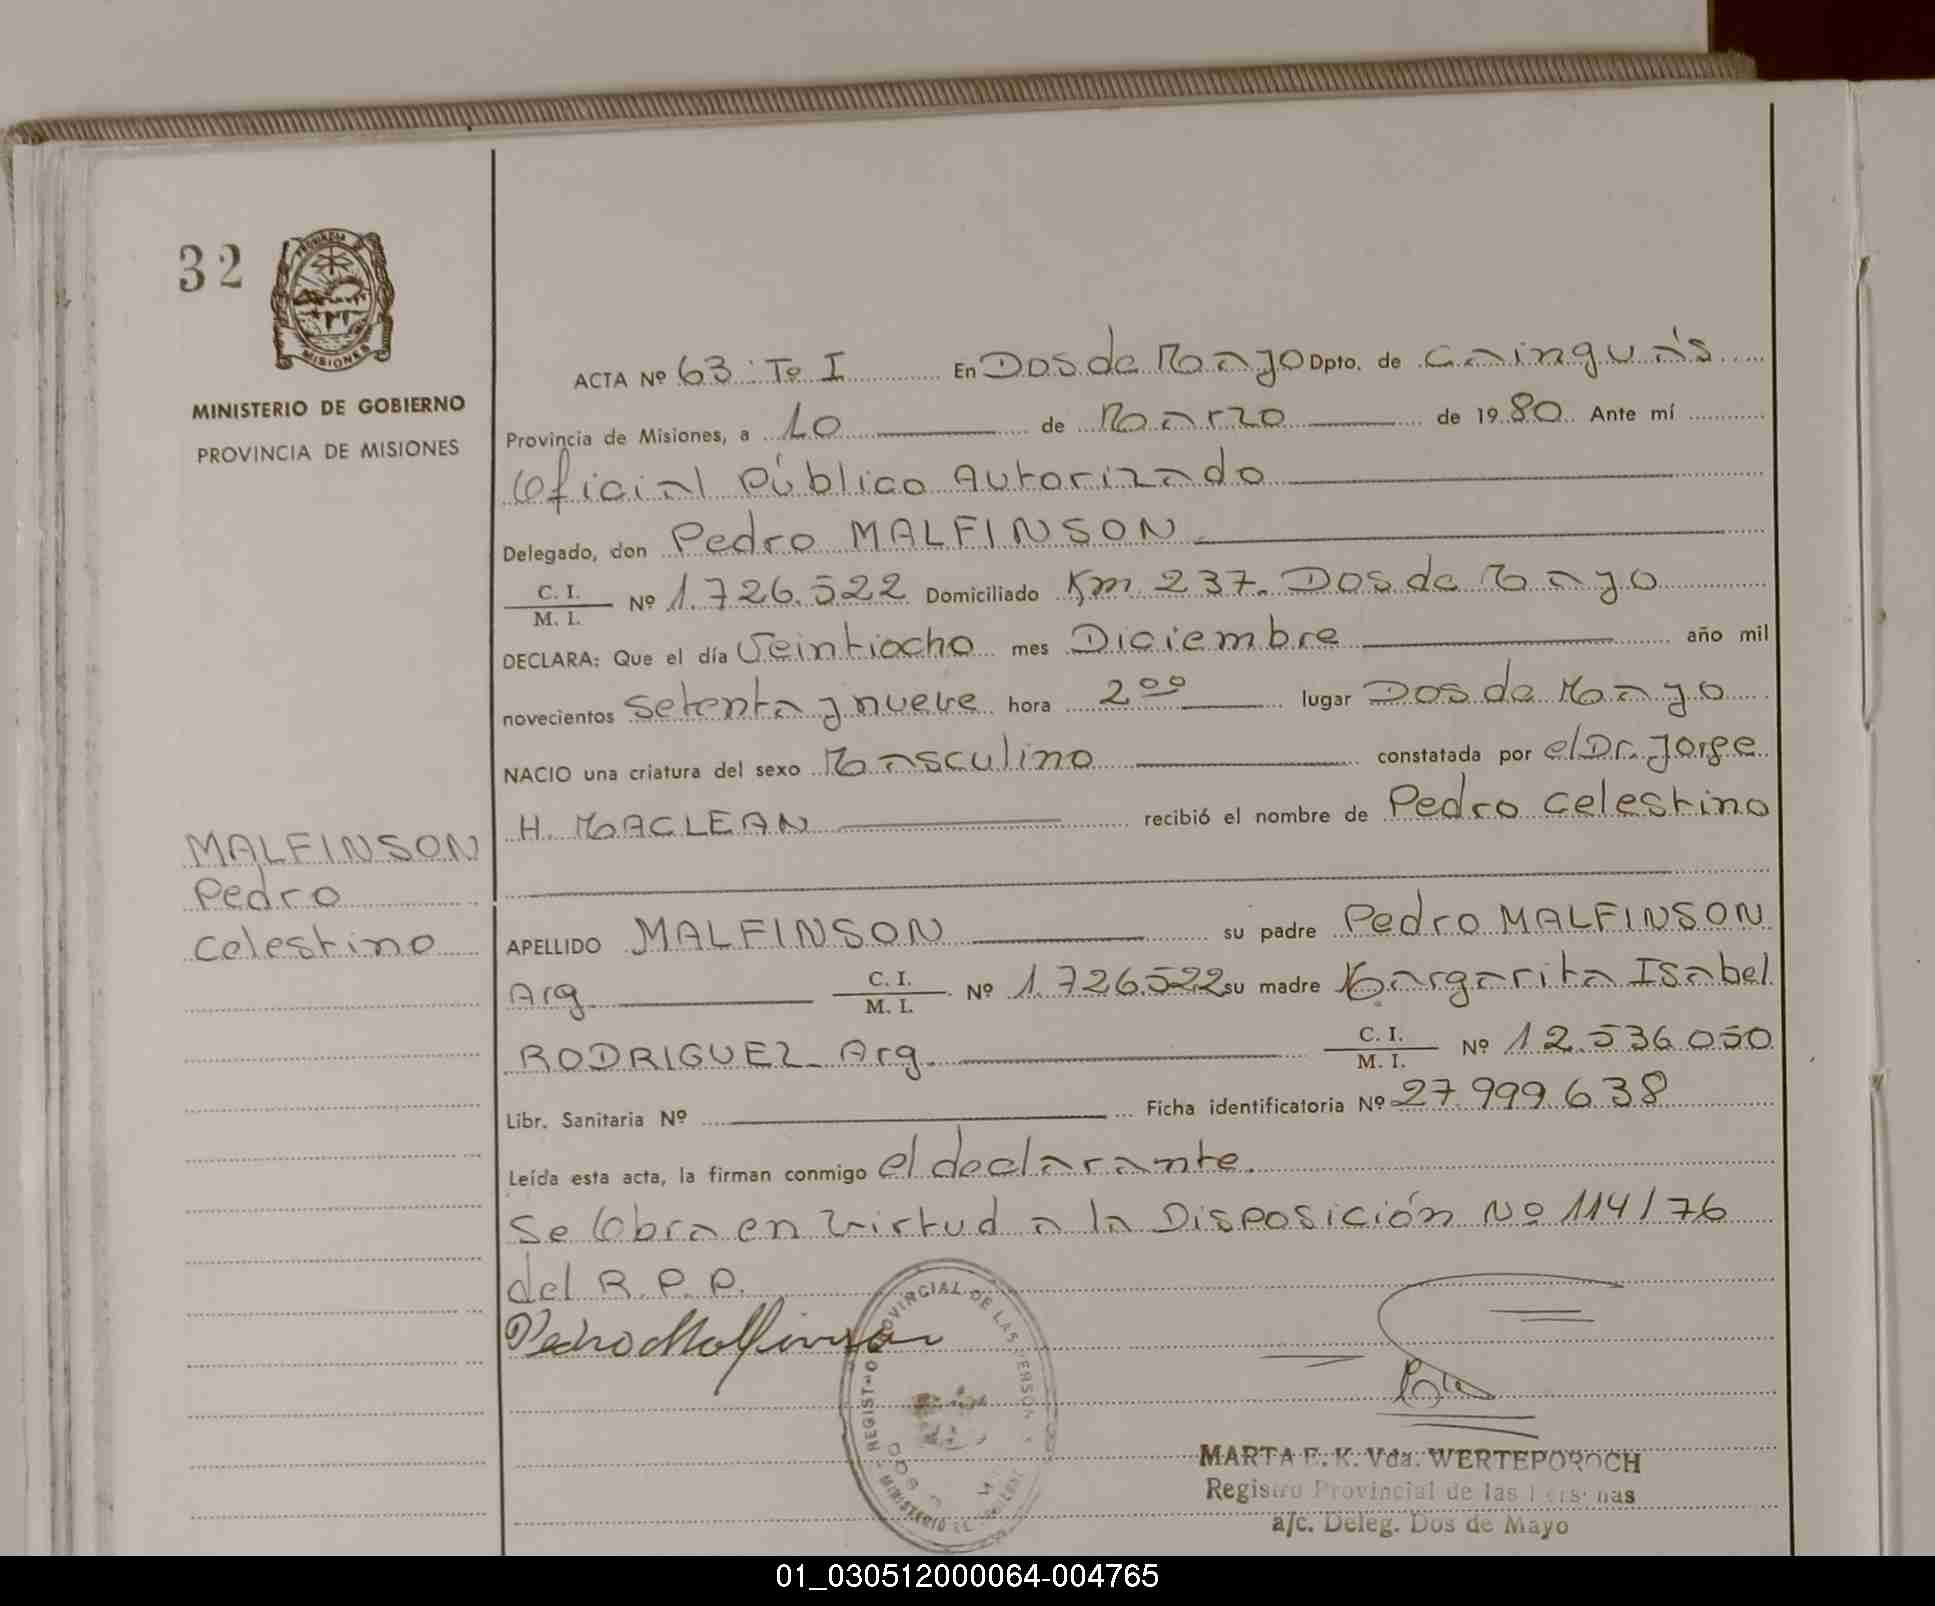 32
PROVINCIA
MISIONES
MINISTERIO DE GOBIERNO
PROVINCIA DE MISIONES
ACTA Nº 63 Tº I En Dos de Mayo Dpto. de Cainguás
Provincia de Misiones, a 10 de Marzo de 1980 Ante mí
Oficial Público Autorizado
Delegado, don Pedro MALFINSON
C. I. / M. I. Nº 1.726.522 Domiciliado Km 237. Dos de Mayo
DECLARA: Que el día Veintiocho mes Diciembre año mil
novecientos Setenta y nueve hora 2 ºº lugar Dos de Mayo
NACIO una criatura del sexo Masculino constatada por el Dr. Jorge
H. MACLEAN recibió el nombre de Pedro Celestino
MALFINSON
Pedro
Celestino
APELLIDO MALFINSON su padre Pedro MALFINSON
Arg C. I. / M. I. Nº 1.726.522 su madre Margarita Isabel
RODRIGUEZ Arg. C. I. / M. I. Nº 12.536.050
Libr. Sanitaria Nº Ficha identificatoria Nº 27.999.638
Leída esta acta, la firman conmigo el declarante.
Se Obra en Virtud a la Disposición Nº 114/76
del R.P.P.
Pedro Malfinson
REGISTRO PROVINCIAL DE LAS PERSON
MINISTERIO
MARTA E. K. Vda. WERTEPOROCH
Registro Provincial de las Personas
a/c. Deleg. Dos de Mayo
01_030512000064-004765